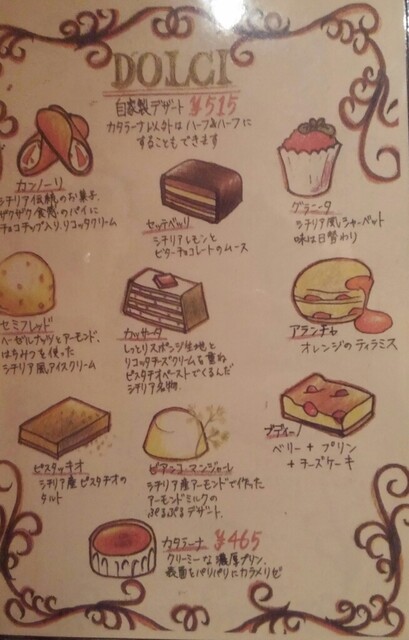 DOLCI
自家製デザート ¥515
カタラーナ以外はハーフ&ハーフに
することもできます
カンノーリ
シチリア伝統のお菓子。
ザクザク食感のパイに
チョコチップ入り、リコッタクリーム
セッテベッリ
シチリアレモンと
ビターチョコレートのムース
グラニータ
シチリア風シャーベット
味は日替わり
セミフレッド
ヘーゼルナッツとアーモンド、
はちみつを使った
シチリア風アイスクリーム
カッサータ
しっとりスポンジ生地と
リコッタチーズクリームを重ね
ピスタチオペーストでくるんだ
シチリア名物。
アランチャ
オレンジのティラミス
ピスタッキオ
シチリア産ピスタチオの
タルト
ビアンコ・マンジャーレ
シチリア産アーモンドで作った
アーモンドミルクの
ぷるぷるデザート。
ブディーノ
ベリー + プリン
+ チーズケーキ
カタラーナ ¥465
クリーミーな濃厚プリン。
表面をパリパリにカラメリゼ